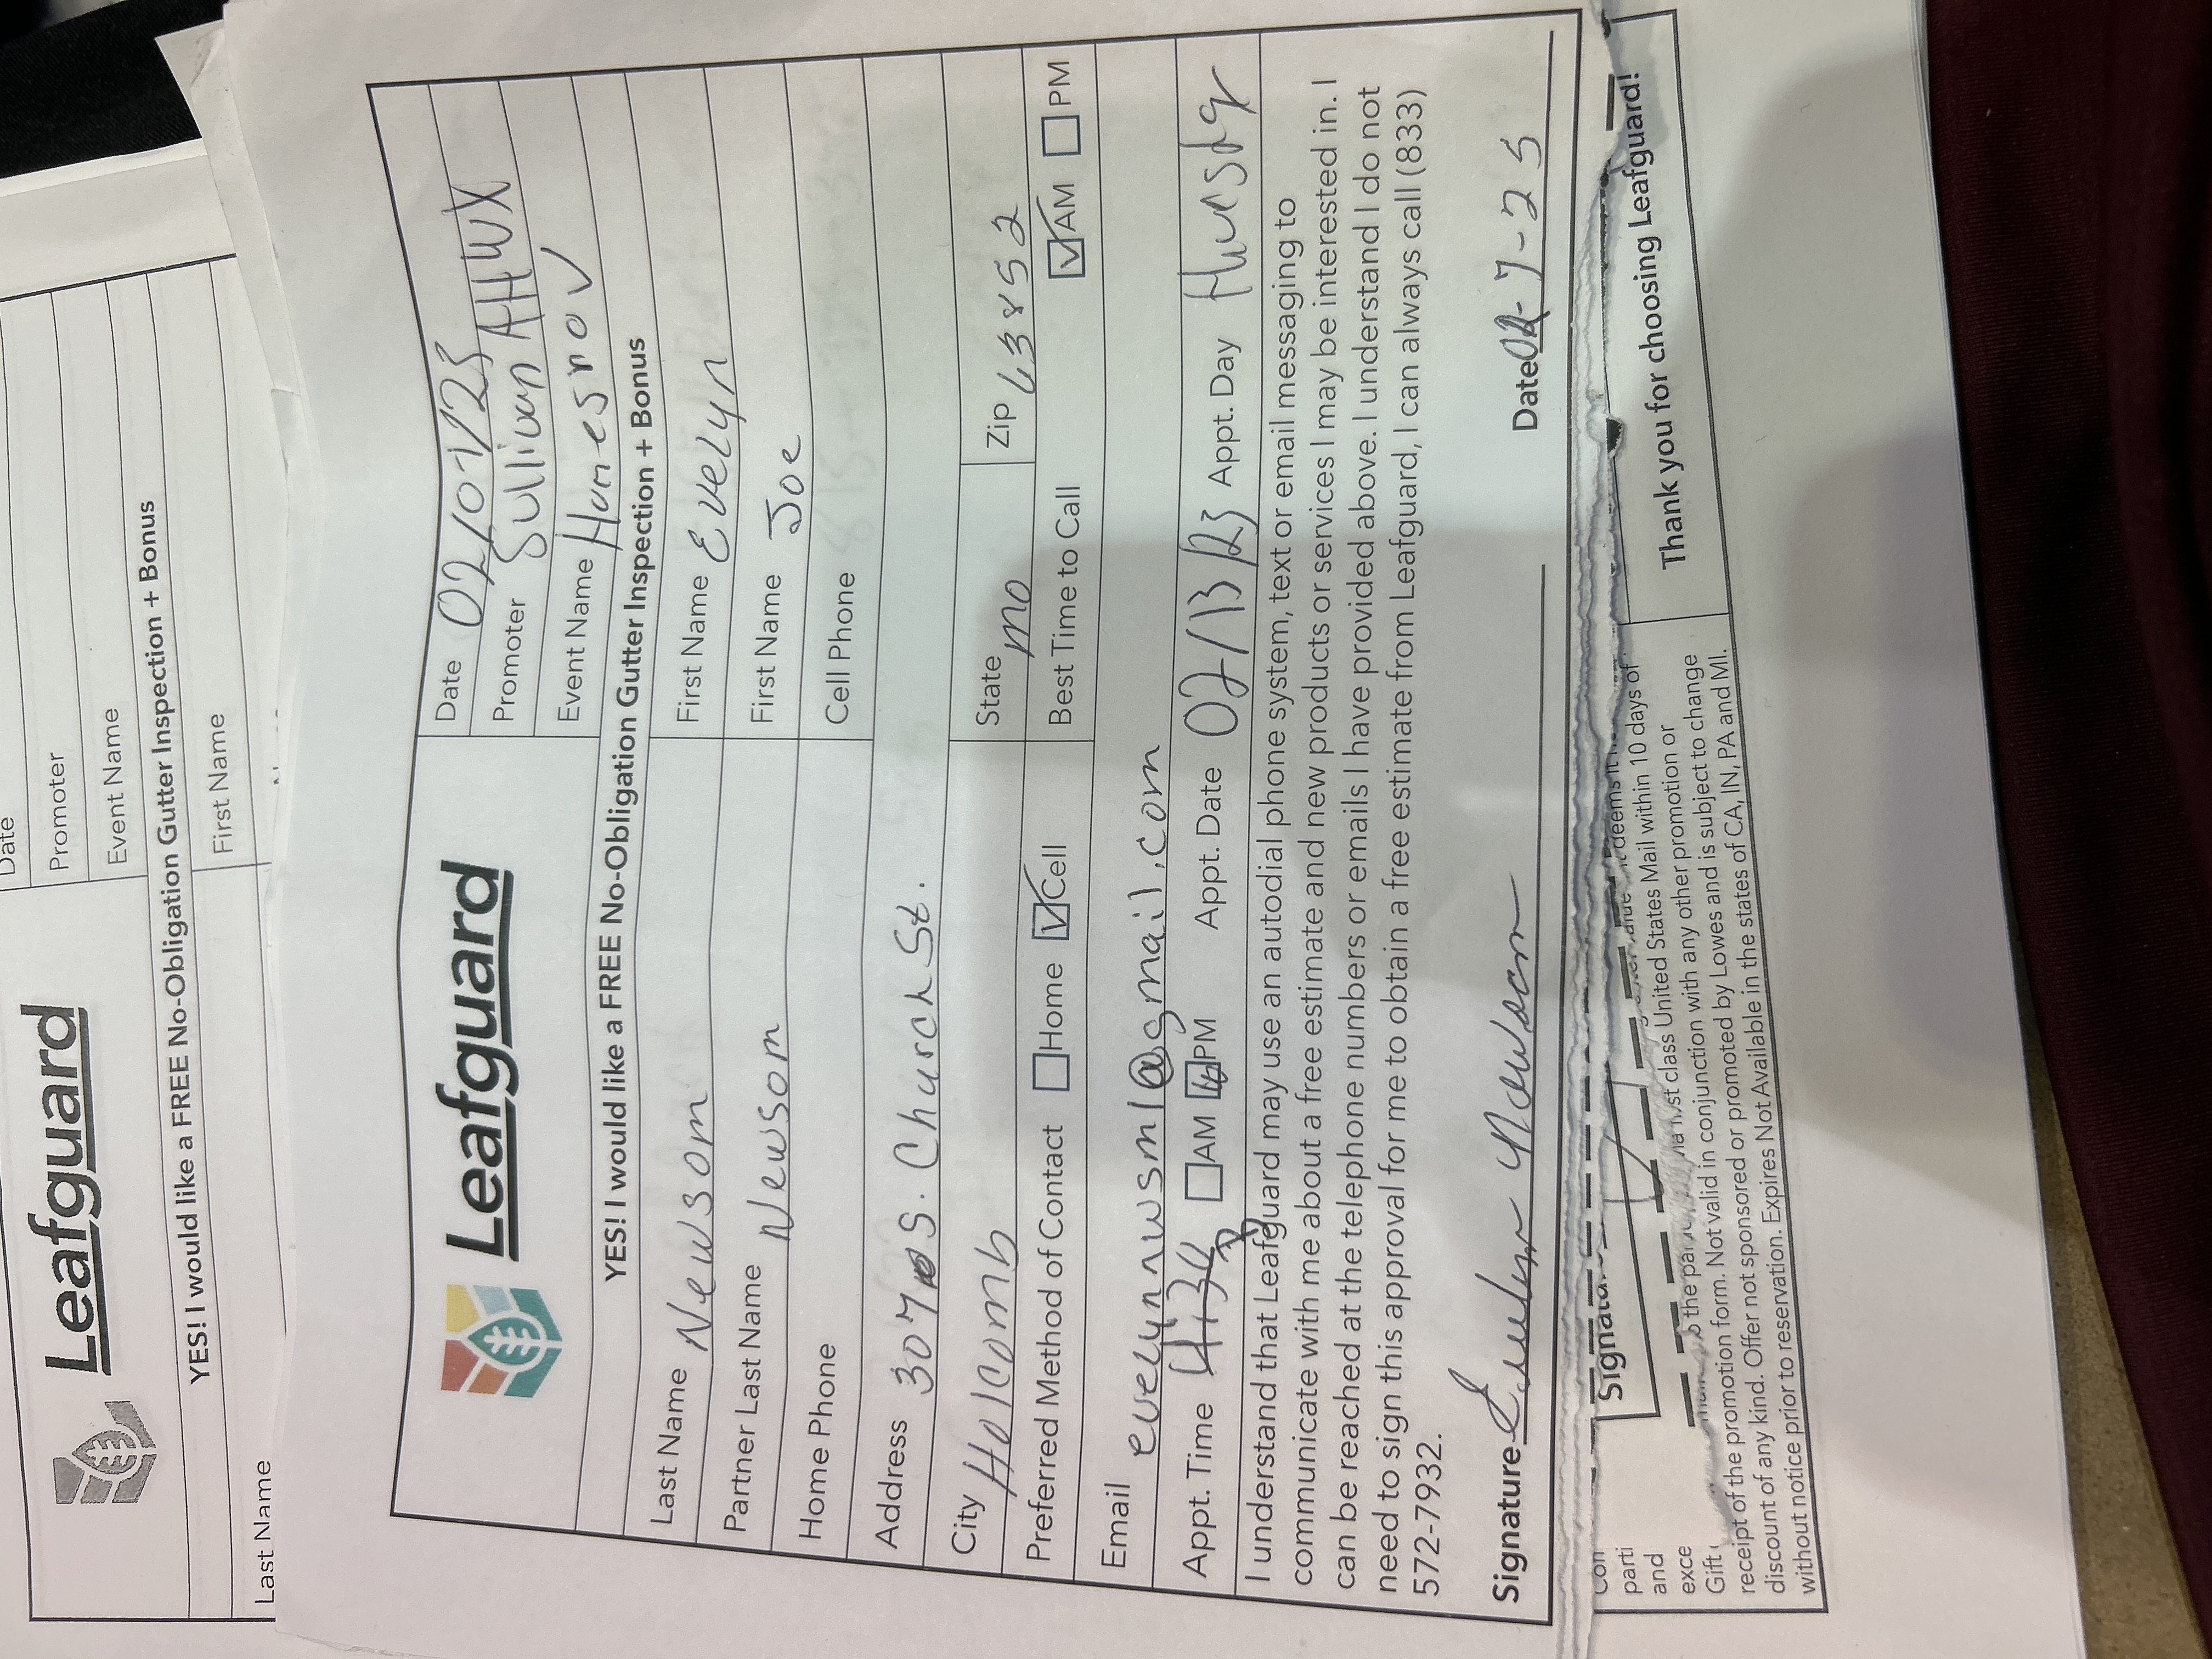 Leafguard
Date
Promoter
Event Name
YES! I would like a FREE No-Obligation Gutter Inspection + Bonus
Last Name
First Name
Leafguard
Date 02/07/23
Promoter Sullivan AHWX
Event Name
YES! I would like a FREE No-Obligation Gutter Inspection + Bonus
Last Name Newsom
First Name Evelyn
Partner Last Name Newsom
First Name Joe
Home Phone
Cell Phone
Address 307 S. Church St.
City Holcomb
State mo
Zip 63852
Preferred Method of Contact Home Cell
Best Time to Call AM PM
Email evelynnwsm1@gmail.com
Appt. Time 4:30 AM PM Appt. Date 02/13/23 Appt. Day
I understand that Leafguard may use an autodial phone system, text or email messaging to
communicate with me about a free estimate and new products or services I may be interested in. I
can be reached at the telephone numbers or emails I have provided above. I understand I do not
need to sign this approval for me to obtain a free estimate from Leafguard, I can always call (833)
572-7932.
Signature Evelyn Newsom
Date 02-7-25
Con
parti
and
exce
Gift
Signatu
deems it
first class United States Mail within 10 days of
receipt of the promotion form. Not valid in conjunction with any other promotion or
discount of any kind. Offer not sponsored or promoted by Lowes and is subject to change
without notice prior to reservation. Expires Not Available in the states of CA, IN, PA and MI.
Thank you for choosing Leafguard!